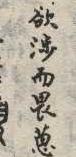 欲涉而畏葸